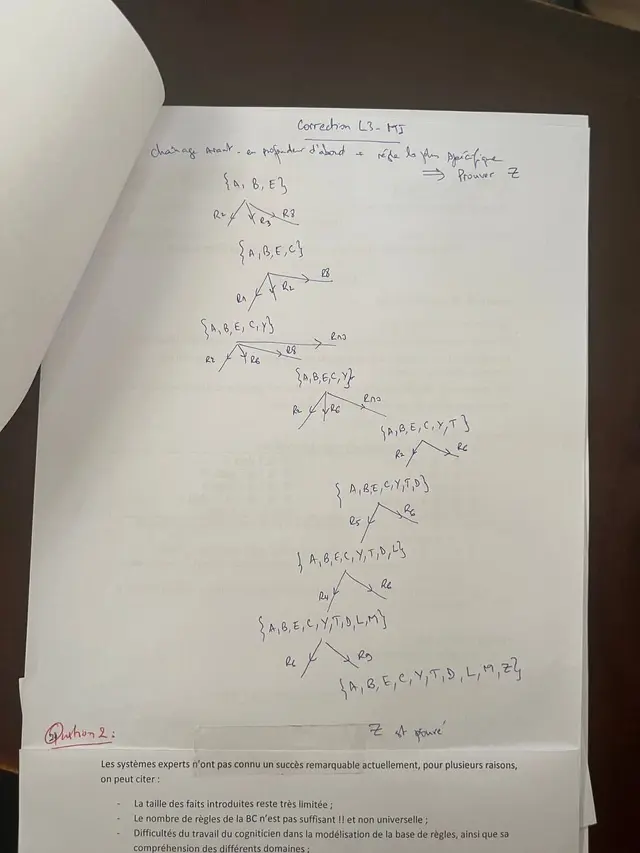 Correction L3-MI
chaînage avant - en profondeur d'abord + règle la plus spécifique
⇒ Prouver Z
{A, B, E}
R2 R3 R8
{A, B, E, C}
R1 R2 R8
{A, B, E, C, Y}
R2 R6 R8 R10
{A, B, E, C, Y}
R2 R6 R10
{A, B, E, C, Y, T}
R2 R6
{A, B, E, C, Y, T, D}
R5 R6
{A, B, E, C, Y, T, D, L}
R4 R6
{A, B, E, C, Y, T, D, L, M}
R6 R9
{A, B, E, C, Y, T, D, L, M, Z}
Z est prouvé
Question 2 :
Les systèmes experts n'ont pas connu un succès remarquable actuellement, pour plusieurs raisons,
on peut citer :
- La taille des faits introduites reste très limitée ;
- Le nombre de règles de la BC n'est pas suffisant !! et non universelle ;
- Difficultés du travail du cogniticien dans la modélisation de la base de règles, ainsi que sa
compréhension des différents domaines ;